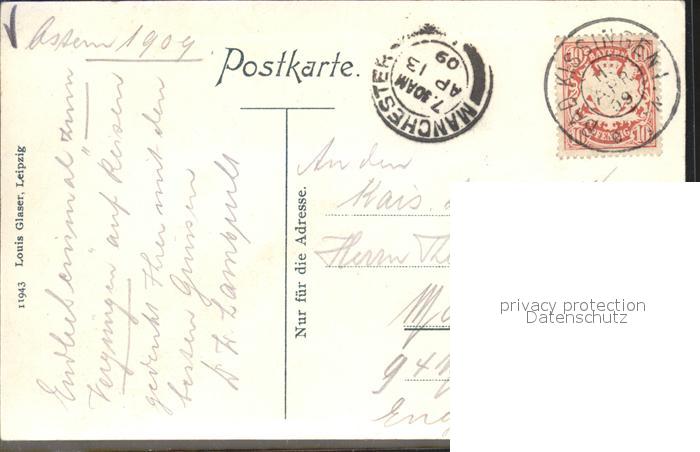 Ostern 1909
Postkarte.
MANCHESTER
7.30AM
AP 13
09
BAD KISSINGEN
BAYERN
10
PFENNIG
10
11943 Louis Glaser, Leipzig
Endlich einmal "zum
Vergnügen" auf Reisen
gedenkt Ihrer mit den
besten Grüssen
Dr
Nur für die Adresse.
An den
Kais.
Herrn
Eng
privacy protection
Datenschutz